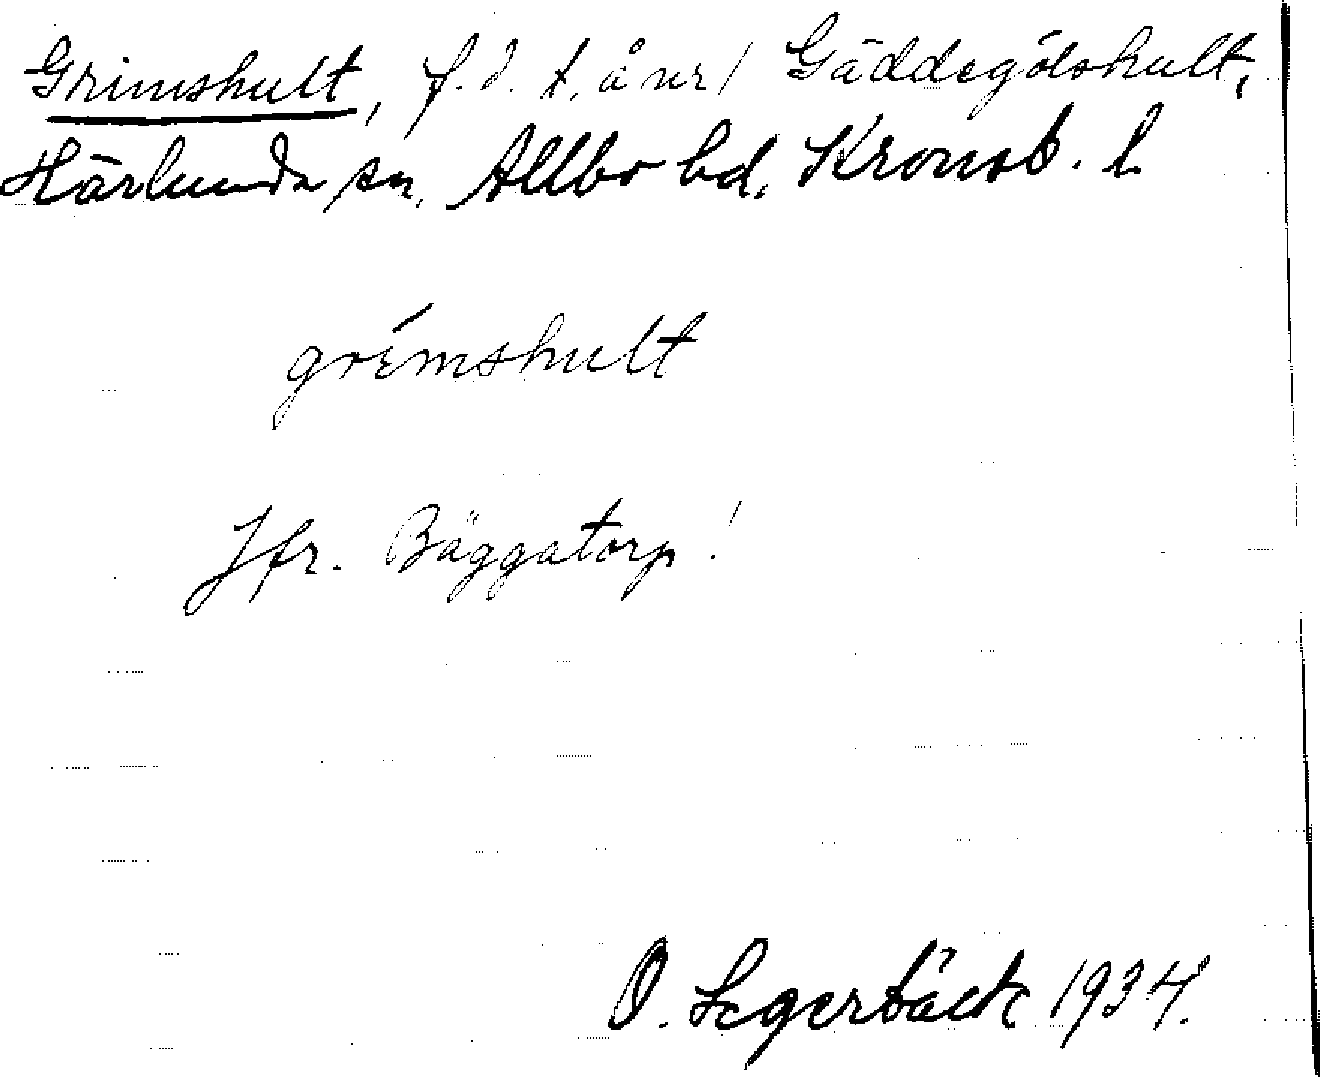 Grimshult, f.d. t. å nr 1 Gäddegölshult,
Härlunda sn, Allbo hd, Kronob. l.
grémshult
Jfr. Bäggatorp!
O. Segerbäck 1934.